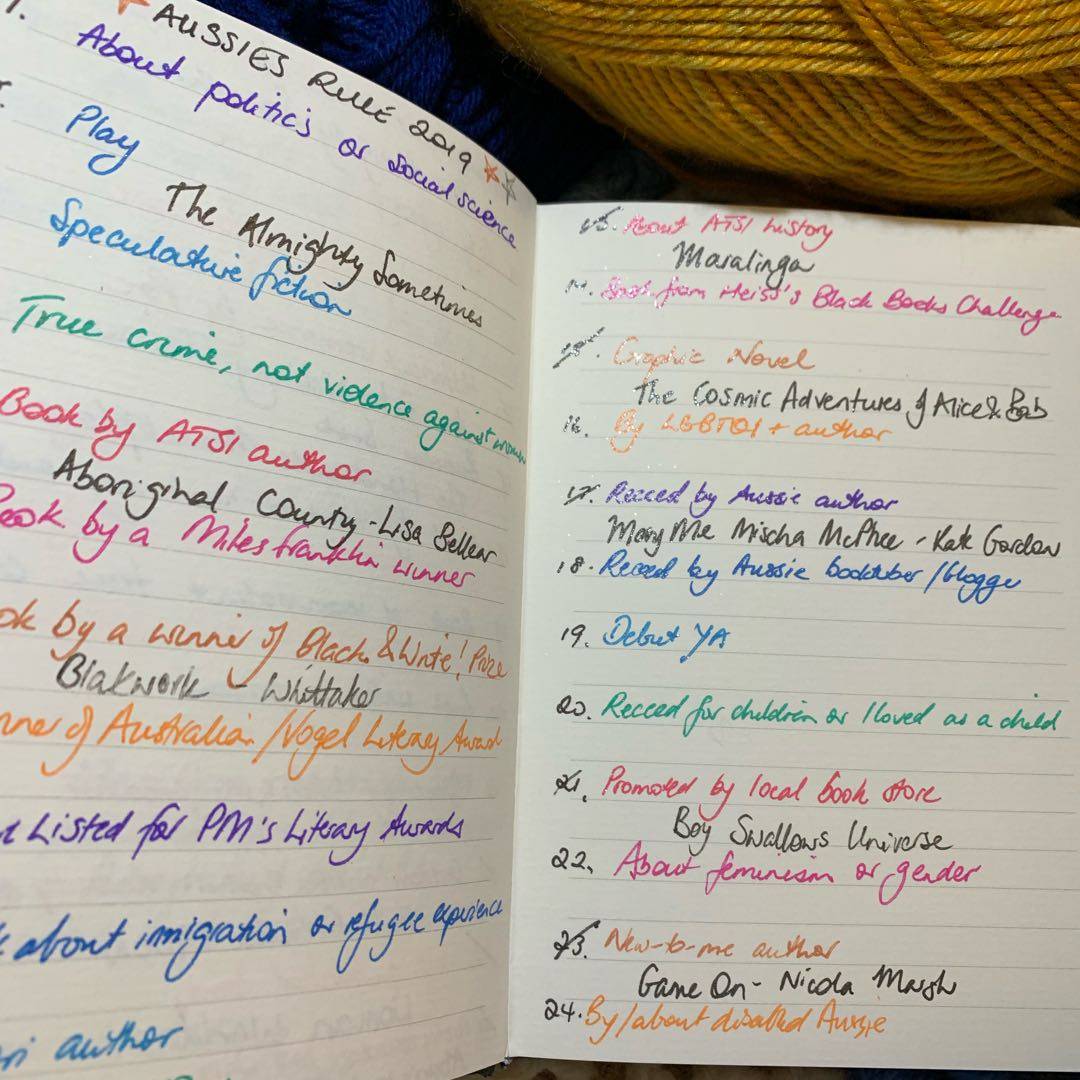 AUSSIES RULE 2019
About politics or social science
Play
The Almighty Sometimes
Speculative fiction
True crime, not violence against women
Book by ATSI author
Aboriginal County - Lisa Bellear
Book by a Miles Franklin winner
by a winner of Black & Write! Prize
Blakwork - Whittaker
of Australian/Vogel Literary Award
Listed for PM's Literary Awards
about immigration or refugee experience
author
About ATSI history
Maralinga
14. Book from Heiss's Black Books Challenge
15. Graphic Novel
The Cosmic Adventures of Alice & Bob
16. By LGBTQI+ author
17. Recced by Aussie author
Mary Me Mischa McPhee - Kate Gordon
18. Recced by Aussie booktuber/blogger
19. Debut YA
20. Recced for children or I loved as a child
21. Promoted by local book store
Boy Swallows Universe
22. About feminism or gender
23. New-to-me author
Game On - Nicola Marsh
24. By/about disabled Aussie